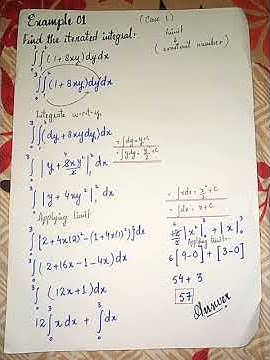 Example 01
(Case 1)
Find the iterated integral:
limit
(constant number)
∫₀³∫₁²(1+8xy)dydx
∫₀³∫₁²(1+8xy)dydx
Integrate w.r.t y
∫₀³∫₁²(dy+8xydy)dx
∫dy=y+c
∫ydy=y²/2+c
∫₀³|y+8xy²/2|₁²dx
∫₀³|y+4xy²|₁²dx
Applying limit
∫₀³[2+4x(2)²-(1+4x(1)²)]dx
∫₀³(2+16x-1-4x)dx
∫₀³(12x+1)dx
12∫₀³xdx+∫₀³dx
∫xdx=x²/2+c
∫dx=x+c
12/2|x²|₀³+|x|₀³
Applying limit
6[9-0]+[3-0]
54+3
57
Answer